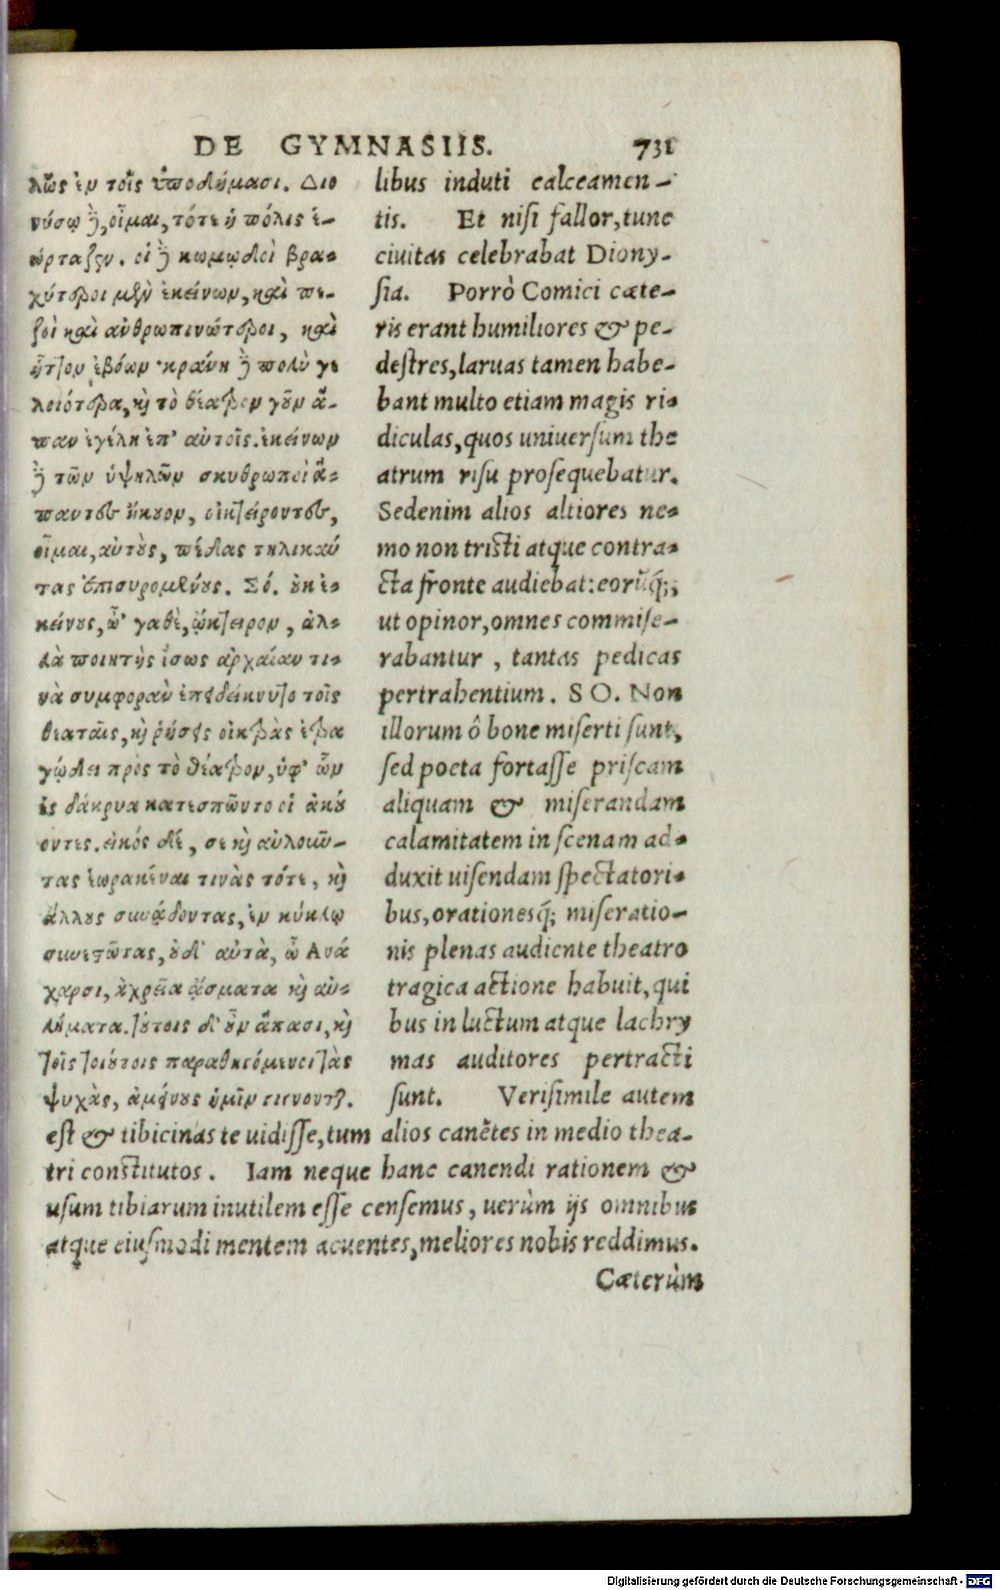 DE GYMNASIIS. 731
λῶς ἐν τοῖς ὑποδήμασι. Διο
νύσῳ δὲ, οἶμαι, τότε ἡ πόλις ἑ-
ώρταζεν. οἱ δὲ κωμῳδοὶ βρα-
χύτεροι μὲν ἐκείνων, καὶ πε-
ζοὶ καὶ ἀνθρωπινώτεροι, καὶ
ἧττον ἐβόων. κράνη δὲ πολὺ γε
λοιότερα, καὶ τὸ θέατρον γοῦν ἅ-
παν ἐγέλα ἐπ' αὐτοῖς. ἐκείνων
δὲ τῶν ὑψηλῶν σκυθρωποὶ ἅ-
παντες ἤκουον, οἰκτείροντες,
οἶμαι, αὐτοὺς, πέδας τηλικαύ
τας ἐπισυρομένους. Σό. οὐκ ἐ-
κείνους, ὦ' γαθὲ, ᾤκτειρον, ἀλ-
λὰ ποιητὴς ἴσως ἀρχαίαν τι-
νὰ συμφορὰν ἐπεδείκνυτο τοῖς
θεαταῖς, καὶ ῥήσεις οἰκτρὰς ἐτρα
γῴδει πρὸς τὸ θέατρον, ὑφ' ὧν
ἐς δάκρυα κατεσπῶντο οἱ ἀκού
οντες. εἰκός δέ, σε καὶ αὐλοιῶ-
τας ἑωρακέναι τινὰς τότε, καὶ
ἄλλους συνᾴδοντας, ἐν κύκλῳ
συνεστῶτας, οὐδ' αὐτὰ, ὦ Ανά
χαρσι, ἀχρεῖα ᾄσματα καὶ αὐ-
λήματα. τούτοις δ' οὖν ἅπασι, καὶ
τοῖς τοιούτοις παραθηγόμενοι τὰς
ψυχὰς, ἀμείνους ἡμῖν γίγνονται.
libus induti calceamen-
tis. Et nisi fallor, tunc
ciuitas celebrabat Diony-
sia. Porrò Comici cæte-
ris erant humiliores & pe-
destres, laruas tamen habe-
bant multo etiam magis ri-
diculas, quos uniuersum the
atrum risu prosequebatur.
Sedenim alios altiores ne-
mo non tristi atque contra-
cta fronte audiebat: eorũq́;,
ut opinor, omnes commise-
rabantur, tantas pedicas
pertrahentium. SO. Non
illorum ô bone miserti sunt,
sed poeta fortasse priscam
aliquam & miserandam
calamitatem in scenam ad-
duxit uisendam spectatori-
bus, orationesq́; miseratio-
nis plenas audiente theatro
tragica actione habuit, qui
bus in luctum atque lachry
mas auditores pertracti
sunt. Verisimile autem
est & tibicinas te uidisse, tum alios canẽtes in medio thea-
tri constitutos. Iam neque hanc canendi rationem &
usum tibiarum inutilem esse censemus, uerùm ijs omnibus
atque eiusmodi mentem acuentes, meliores nobis reddimus.
Cæterùm
Digitalisierung gefördert durch die Deutsche Forschungsgemeinschaft - DFG